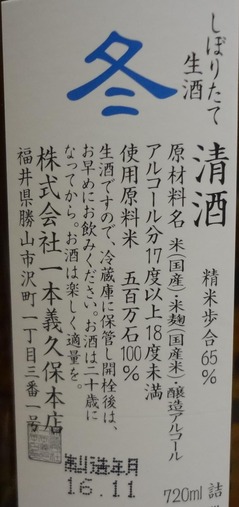 しぼりたて
生酒
冬
清酒
精米歩合65%
原材料名 米(国産)・米麹(国産米)・醸造アルコール
アルコール分17度以上18度未満
使用原料米 五百万石100%
生酒ですので、冷蔵庫に保管し開栓後は、
お早めにお飲みください。お酒は二十歳に
なってから。お酒は楽しく適量を。
株式会社一本義久保本店
福井県勝山市沢町一丁目三番一号
製造年月
16.11
720ml 詰